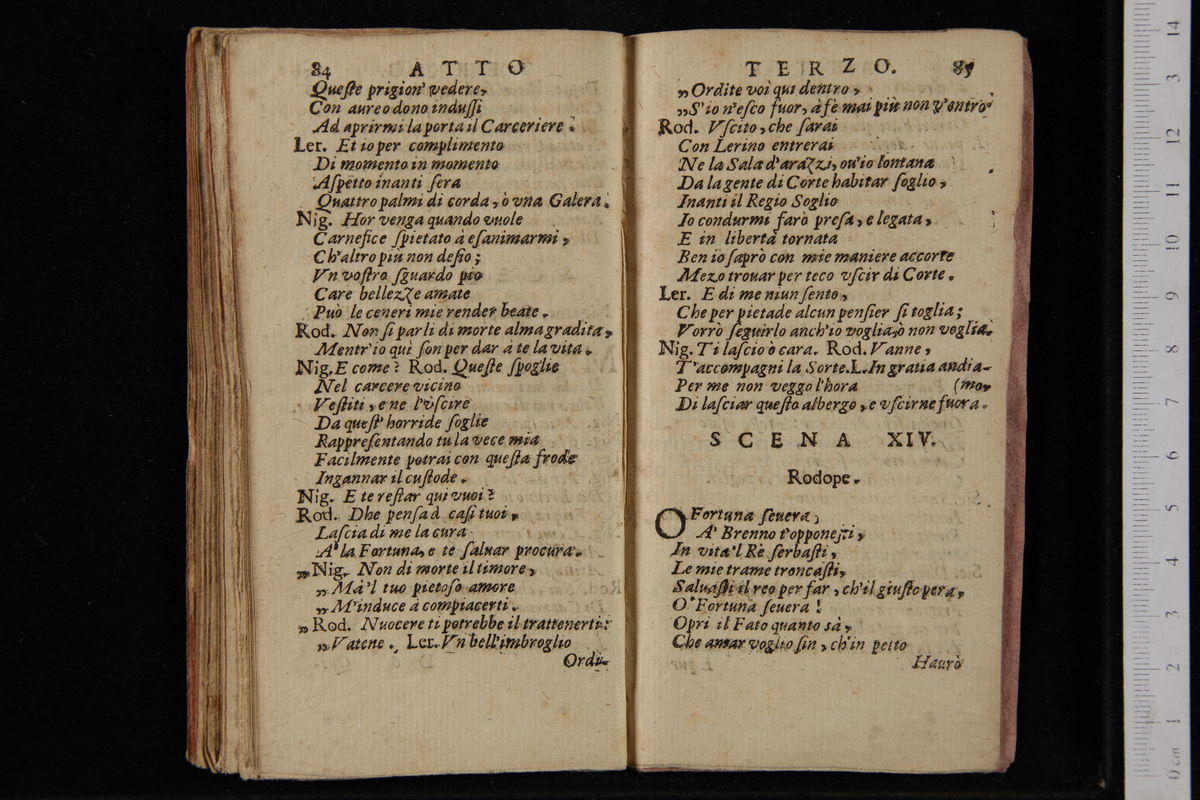 84 ATTO
Queſte prigion' vedere,
Con aureo dono induſſi
Ad aprirmi la porta il Carceriere.
Ler. Et io per complimento
Di momento in momento
Aſpetto inanti ſera
Quattro palmi di corda, ò vna Galera.
Nig. Hor venga quando vuole
Carnefice ſpietato à eſanimarmi,
Ch'altro più non deſio;
Vn voſtro ſguardo pio
Care bellezze amate
Può le ceneri mie render beate.
Rod. Non ſi parli di morte alma gradita,
Mentr'io qui ſon per dar à te la vita.
Nig. E come? Rod. Queſte ſpoglie
Nel carcere vicino
Veſtiti, e ne l'vſcire
Da queſt' horride ſoglie
Rappreſentando tu la vece mia
Facilmente potrai con queſta frode
Ingannar il cuſtode.
Nig. E te reſtar qui vuoi?
Rod. Dhe penſa à caſi tuoi,
Laſcia di me la cura
A' la Fortuna, e te ſaluar procura.
„Nig. Non di morte il timore,
„Mà'l tuo pietoſo amore
„M'induce à compiacerti.
„Rod. Nuocere ti potrebbe il trattenerti:
„Vatene. Ler. Vn bell'imbroglio
Ordi-
TERZO. 85
„Ordite voi qui dentro,
„S'io n'eſco fuor, à fè mai più non v'entro
Rod. Vſcito, che ſarai
Con Lerino entrerai
Ne la Sala d'arazzi, ou'io lontana
Da la gente di Corte habitar ſoglio,
Inanti il Regio Soglio
Io condurmi farò preſa, e legata,
E in libertà tornata
Ben io ſaprò con mie maniere accorte
Mezo trouar per teco vſcir di Corte.
Ler. E di me niun ſento,
Che per pietade alcun penſier ſi toglia;
Vorrò ſeguirlo anch'io voglia, ò non voglia.
Nig. Ti laſcio ò cara. Rod. Vanne,
T'accompagni la Sorte. L. In gratia andia-
Per me non veggo l'hora (mo,
Di laſciar queſto albergo, e vſcirne fuora.
SCENA XIV.
Rodope.
O Fortuna ſeuera,
A' Brenno t'opponeſti,
In vita'l Rè ſerbaſti,
Le mie trame troncaſti,
Saluaſti il reo per far, ch'il giuſto pera,
O' Fortuna ſeuera!
Opri il Fato quanto sà,
Che amar voglio ſin, ch'in petto
Haurò